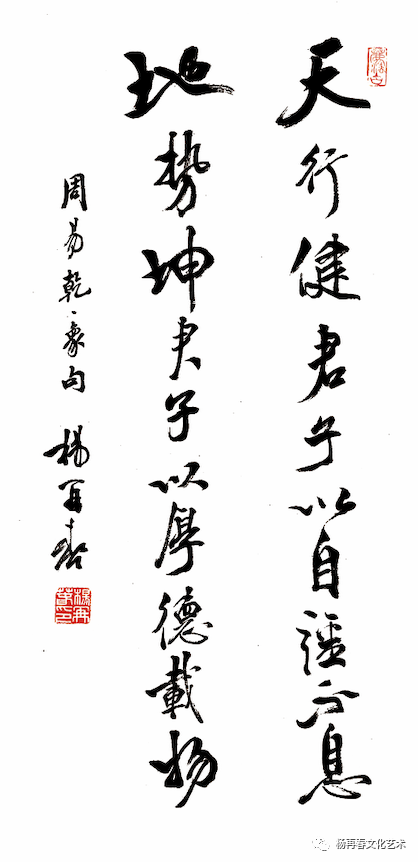 天行健君子以自彊不息
地势坤君子以厚德載物
周易乾·象句
楊再春
杨再春文化艺术